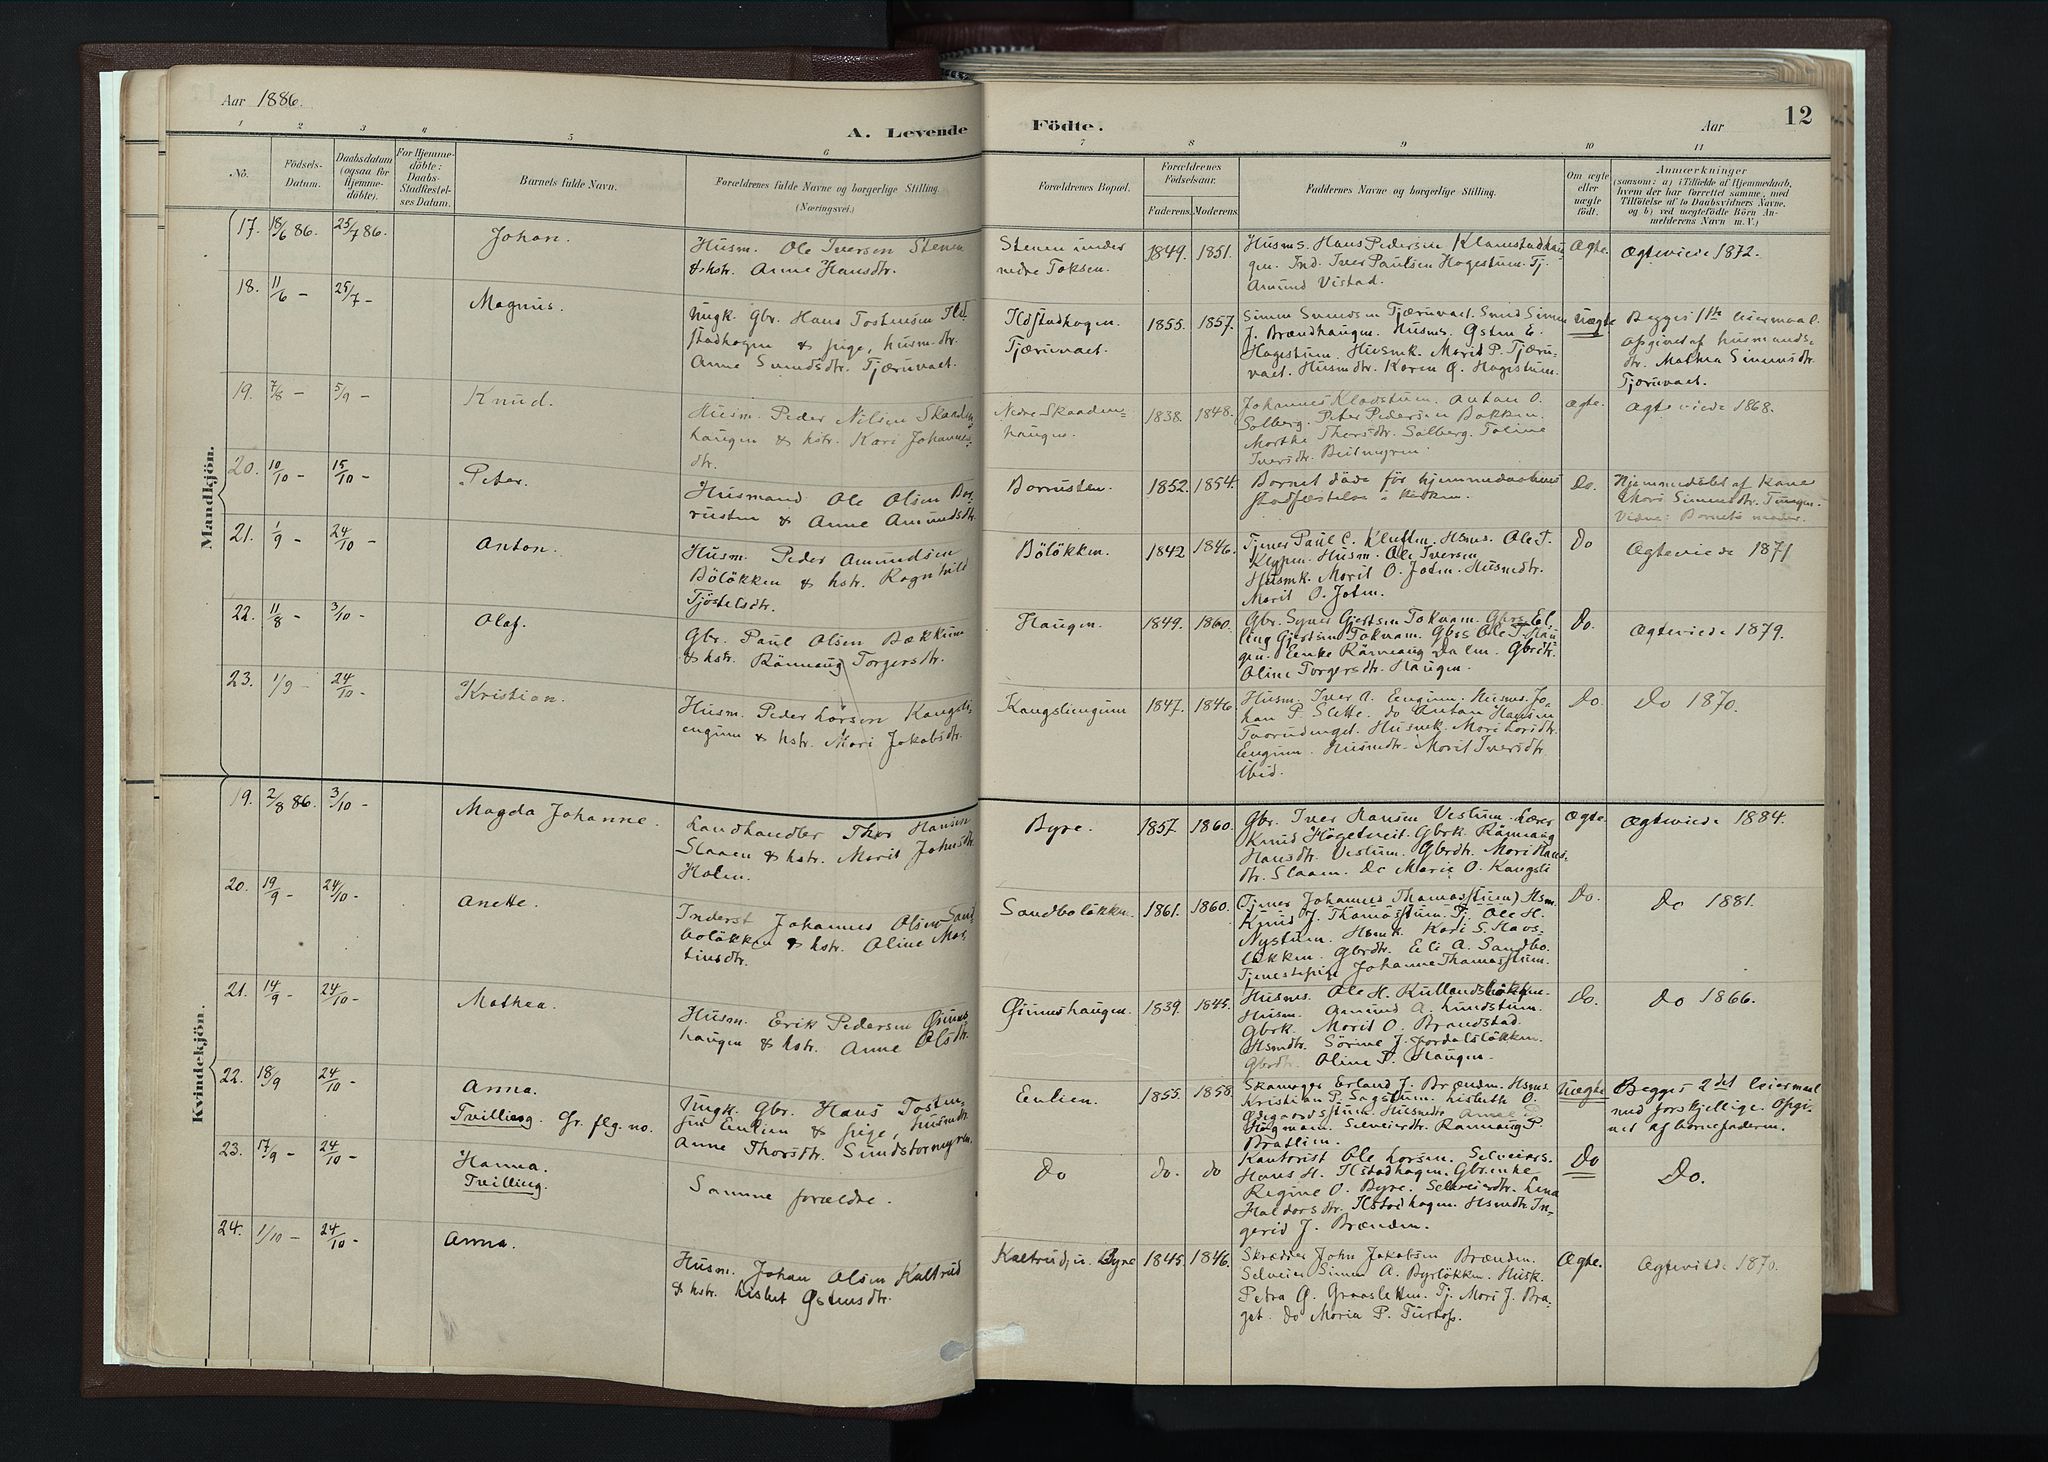 Aar 1886.
A. Levende Födte.
Aar
12
1 2 3 4 5 6 7 8 9 10 11
No.
Födsels-Datum.
Daabsdatum (ogsaa for Hjemme-döbte).
For Hjemme-döbte: Daabs-Stadfæstel-ses Datum.
Barnets fulde Navn.
Forældrenes fulde Navne og borgerlige Stilling. (Næringsvei.)
Forældrenes Bopæl.
Forældrenes Födselsaar.
Faderens. Moderens.
Faddernes Navne og borgerlige Stilling.
Om ægte eller uægte födt.
Anmærkninger
(saasom: a) i Tilfælde af Hjemmedaab, hvem der har forrettet samme, med Tilföielse af to Daabsvidners Navne, og b) ved uægtefödte Börn An-melderens Navn m. V.)
Mandkjön.
17. 18/6 86. 25/7 86. Johan.
Husm. Ole Iversen Stenen
& hstr. Anne Hansdtr.
Stenen under
nedre Toksen.
1849. 1851.
Husms. Hans Pedersen Klomstadhau
gen. Ind. Iver Paulsen Hogestum. Tj.
Amund Vistad.
Ægte.
Ægteviede 1872.
18. 11/6 - 25/7 - Magnus.
Ungk. Gbr. Hans Tostensen Ild
stadhogen & pige, husm.dtr.
Anne Simensdtr. Tjæruvaet.
Ildstadhogen.
Tjæruvaet.
1855. 1857.
Simen Simensen Tjæruvaet. Smid Simen
J. Brændhaugen. Husms. Østen E.
Hogestuen. Husmk. Marit P. Tjæru-
vaet. Husmdtr. Karen Ø. Hogstuen.
Uægte
Begges 1ste leiermaal.
opgivet af husmands-
dtr. Mathea Simensdtr.
Tjæruvaet.
19. 7/8 - 5/9 - Knud.
Husm. Peder Nilsen Skaaden
haugen & hstr. Kari Johannes-
dtr.
Nedre Skaaden-
haugen.
1838. 1848.
Johannes Klodstum. Anton O.
Solberg. Peter Pedersen Bakken.
Marthe Thorsdtr. Solberg. Toline
Iversdtr. Beitmyren.
Ægte.
Ægteviede 1868.
20. 10/10 - 15/10 - Peter.
Husmand Ole Olsen Bor-
rusten & Anne Amundsdtr.
Borrusten.
1852. 1854.
Barnet döde för hjemmedaabens
stadfæstelse i kirken.
Do.
Hjemmedöbt af Kone
Mari Simensdtr. Tungen.
Vidne: Barnets moder.
21. 1/9 - 24/10 - Anton.
Husm. Peder Amundsen
Bölökken & hstr. Ragnhild
Tjöstelsdtr.
Bölökken.
1842 1846.
Tjener Paul C. Kluften. Hsms. Ole T.
Klypen. Husm. Ole Iversen
Husmk. Marit O. Joten. Husmdtr.
Marit O. Joten.
Do
Ægteviede 1871
22. 11/8 - 3/10 - Olaf.
Gbr. Paul Olsen Bækkum
& hstr. Rönnaug Torgersdtr.
Haugen.
1849. 1860.
Gbr. Syver Gjertsen Tokvam. Gbrs El.
ling Gjertsen Tokvam. Gbrs Ole T. Hau
gen. Enke Rönnaug Dalen. Gbrdtr.
Oline Torgersdtr. Haugen.
Do.
Ægteviede 1879.
23. 1/9 - 24/10 - Kristian.
Husm. Peder Larsen Kongsli-
engum & hstr. Mari Jakobsdtr.
Kongsliengum
1847. 1846.
Husm. Iver A. Engum. Husms. Jo-
han P. Slette. do Anton Hansen
Husmk. Mari Larsdtr.
Engum. Husmdtr. Marit Iversdtr.
ibid.
Do.
Do 1870.
Kvindekjön.
19. 2/8 86. 3/10 - Magda Johanne.
Landhandler Thor Hansen
Slaaen & hstr. Marit Johnsdtr.
Holen.
Byre.
1857. 1860.
Gbr. Iver Hansen Vestum. Lærer
Knud Högetveit. Gbrk. Rönnaug
Hansdtr. Vestum. Gbrdtr. Mari Hans-
dtr. Slaaen. Do Marie O. Kongsli
Ægte.
Ægteviede 1884.
20. 19/9 - 24/10 - Anette.
Inderst Johannes Olsen Sand
bolökken & hstr. Oline Mor-
tinsdtr.
Sandbolökken.
1861. 1860.
Tjener Johannes Thomasstuen) Hsm.
Knud J. Thomasstuen. Tj. Ole H.
Nystuen. Hsmk. Kari S. Haos-
lökken. Gbrdtr. Eli A. Sandbo-
lökken. Tjenestepige Johanne Thomasstuen.
Do.
Do 1881.
21. 14/9 - 24/10 - Mathea.
Husm. Erik Pedersen Øiums
haugen & hstr. Anne Olsdtr.
Øiumshaugen.
1839. 1845.
Husms. Ole H. Rullandslökken.
Husm. Amund A. Lundstuen.
Gbrk. Marit O. Brandstad.
Hsmdtr. Sörine J. Jordalslökken.
Gbrdtr. Oline P. Haugen.
Do.
Do 1866.
22. 18/9 24/10 - Anna.
Tvilling. Cfr. flg. no.
Ungk. Gbr. Hans Tosten-
sen Enlien & pige, husmdtr.
Anne Thorsdtr. Sundstormyren.
Enlien.
1855. 1858.
Skomager Erland J. Brænden. Hsms.
Kristian P. Sagstuen. Lisbeth O.
Ødegaardsstuen. Husmdtr
Högmoen. Selveierdtr. Rönnaug P.
Bratlien.
Uægte
Begges 2det leiermaal
med forskjellige. Opgi-
vet af barnefaderen.
23. 17/9 - 24/10 - Hanna.
Tvilling.
Samme forældre.
Do
do. do
Kantorist Ole Larsen. Selveiers.
Hans H. Ilstadhagen. Gbr.enke
Regine O. Byre. Selveierdtr. Lina
Haldorsdtr. Ilstadhagen. Hsmdtr. In-
gerid J. Brænden.
Do
Do.
24. 1/10 - 24/10 - Anna.
Husm. Johan Olsen Kaltrud
& hstr. Lisbet Østensdtr.
Kaltrud, u. Byre
1845. 1846.
Skræder John Jakobsen Brænden.
Selveier Simen A. Byrlökken. Husk.
Petra O. Graasletten. Tj. Mari J. Bra-
get. do Maria P. Furtop.
Ægte.
Ægteviede 1870.